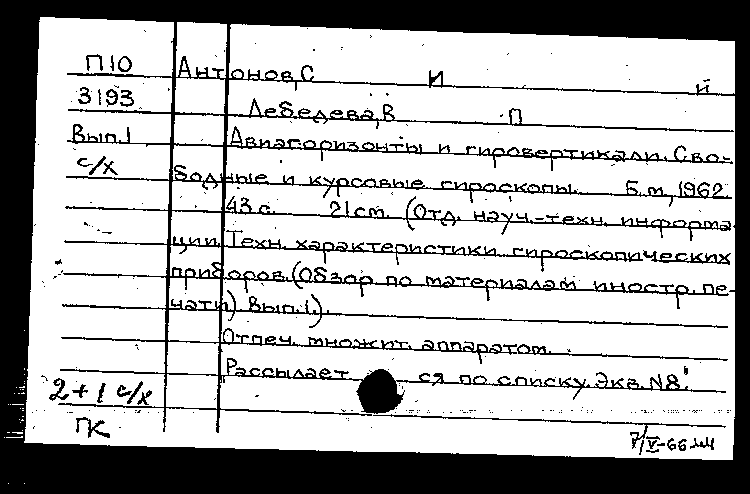 П10 Антонов, С И й
3193 Лебедева, В П
Вып.1 Авиагоризонты и гировертикали. Сво-
с/х бодные и курсовые гироскопы. Б.м., 1962
43 с. 21 см. (Отд. науч.-техн. информа-
ции. Техн. характеристики гироскопических
приборов. (Обзор по материалам иностр. пе-
чати). Вып.1.).
Отпеч. множит. аппаратом.
Рассылает ся по списку. Экз. N8.
2+1 с/х
ПК
7/V-66